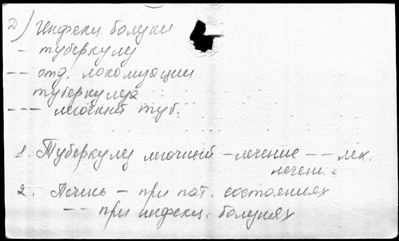 2) Инфекц. болезни
– туберкулез
–– отд. локализации
туберкулеза
––– легочный туб.
1. Туберкулез легочный – лечение –– лек.
лечен.
2. Печень – при пат. состояниях
–– при инфекц. болезнях